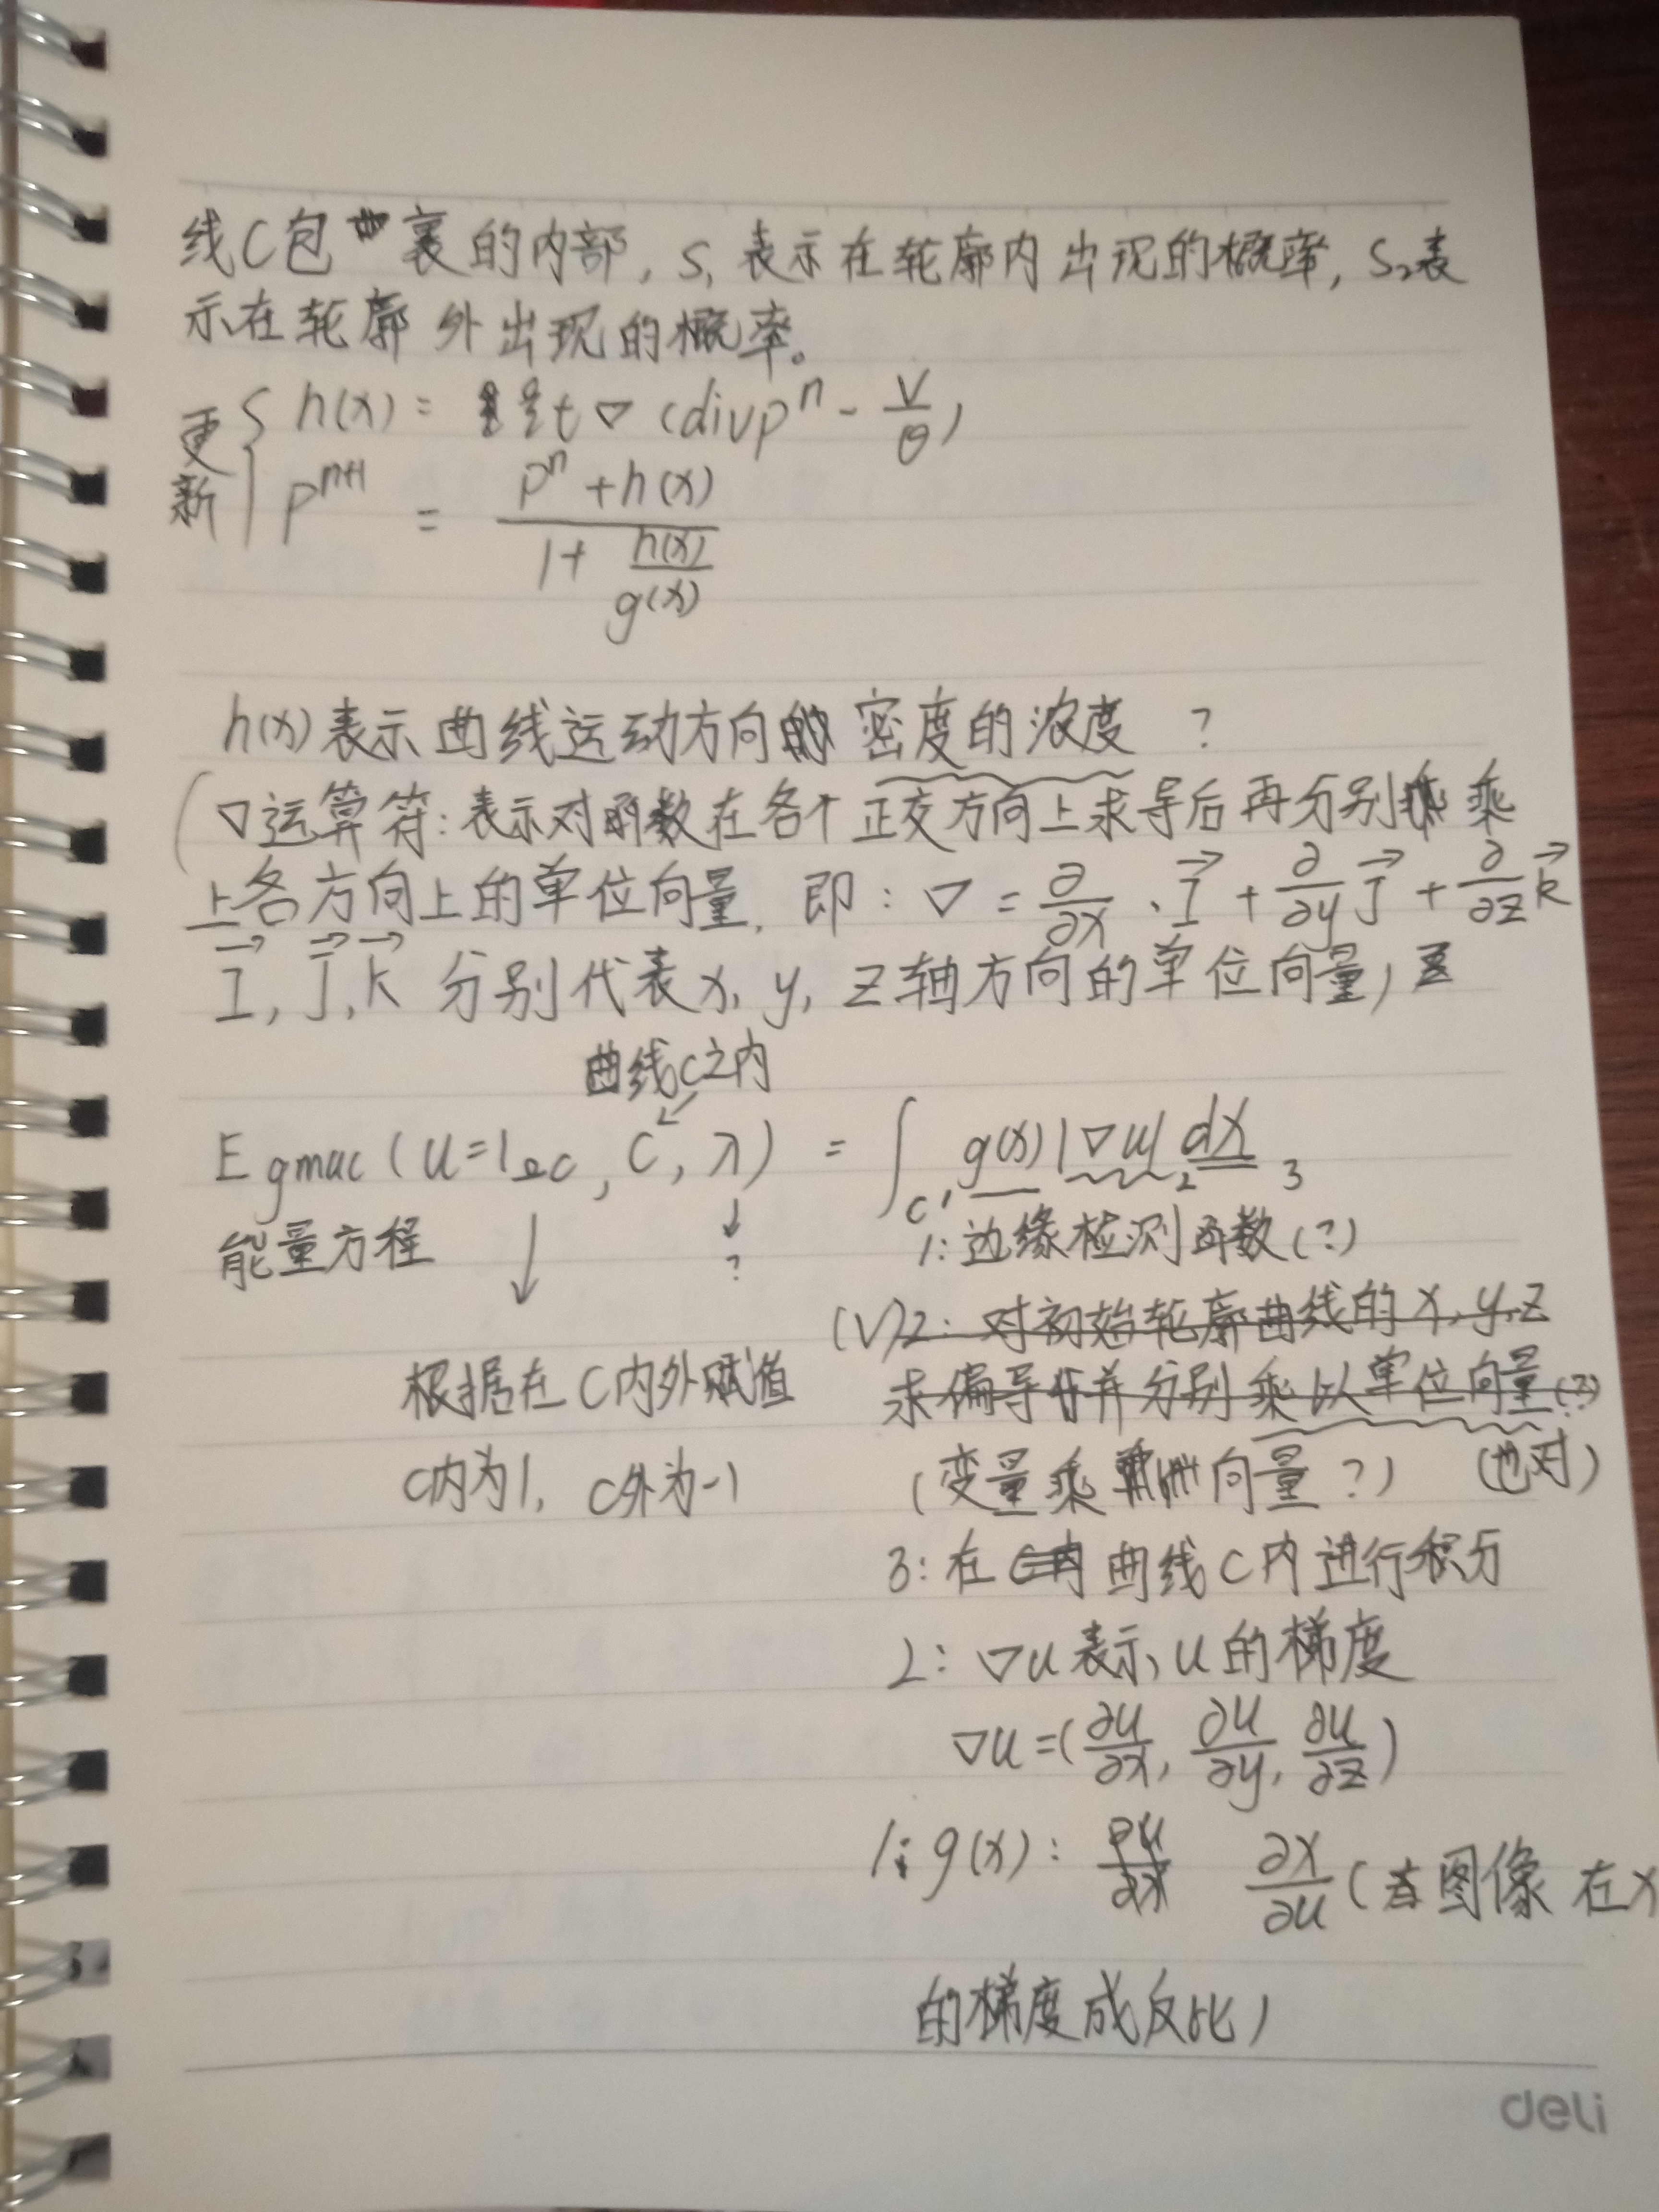 线C包裹的内部, S₁表示在轮廓内出现的概率, S₂表
示在轮廓外出现的概率。
更新 { h(x) = t▽(divpⁿ - V/θ)
pⁿ⁺¹ = (pⁿ+h(x)) / (1+ h(x)/g(x))
h(x)表示曲线运动方向的密度的浓度 ?
(▽运算符:表示对函数在各个正交方向上求导后再分别乘
上各方向上的单位向量, 即: ▽ = ∂/∂x · I⃗ + ∂/∂y J⃗ + ∂/∂z k⃗
I⃗, J⃗, k⃗ 分别代表x, y, z轴方向的单位向量)
曲线C之内
Egmac(u=1Ωc, C, λ) = ∫c, g(x)|▽u| dx
2 3
能量方程
↓ ↓ ?
1:边缘检测函数(?)
(V)2: 对初始轮廓曲线的x,y,z
根据在C内外赋值
求偏导并分别乘以单位向量(?)
C内为1, C外为-1
(变量乘向量?) (也对)
3:在曲线C内进行积分
2: ▽u表示u的梯度
▽u=(∂u/∂x, ∂u/∂y, ∂u/∂z)
1: g(x): ∂x/∂u (图像在x
的梯度成反比)
deli